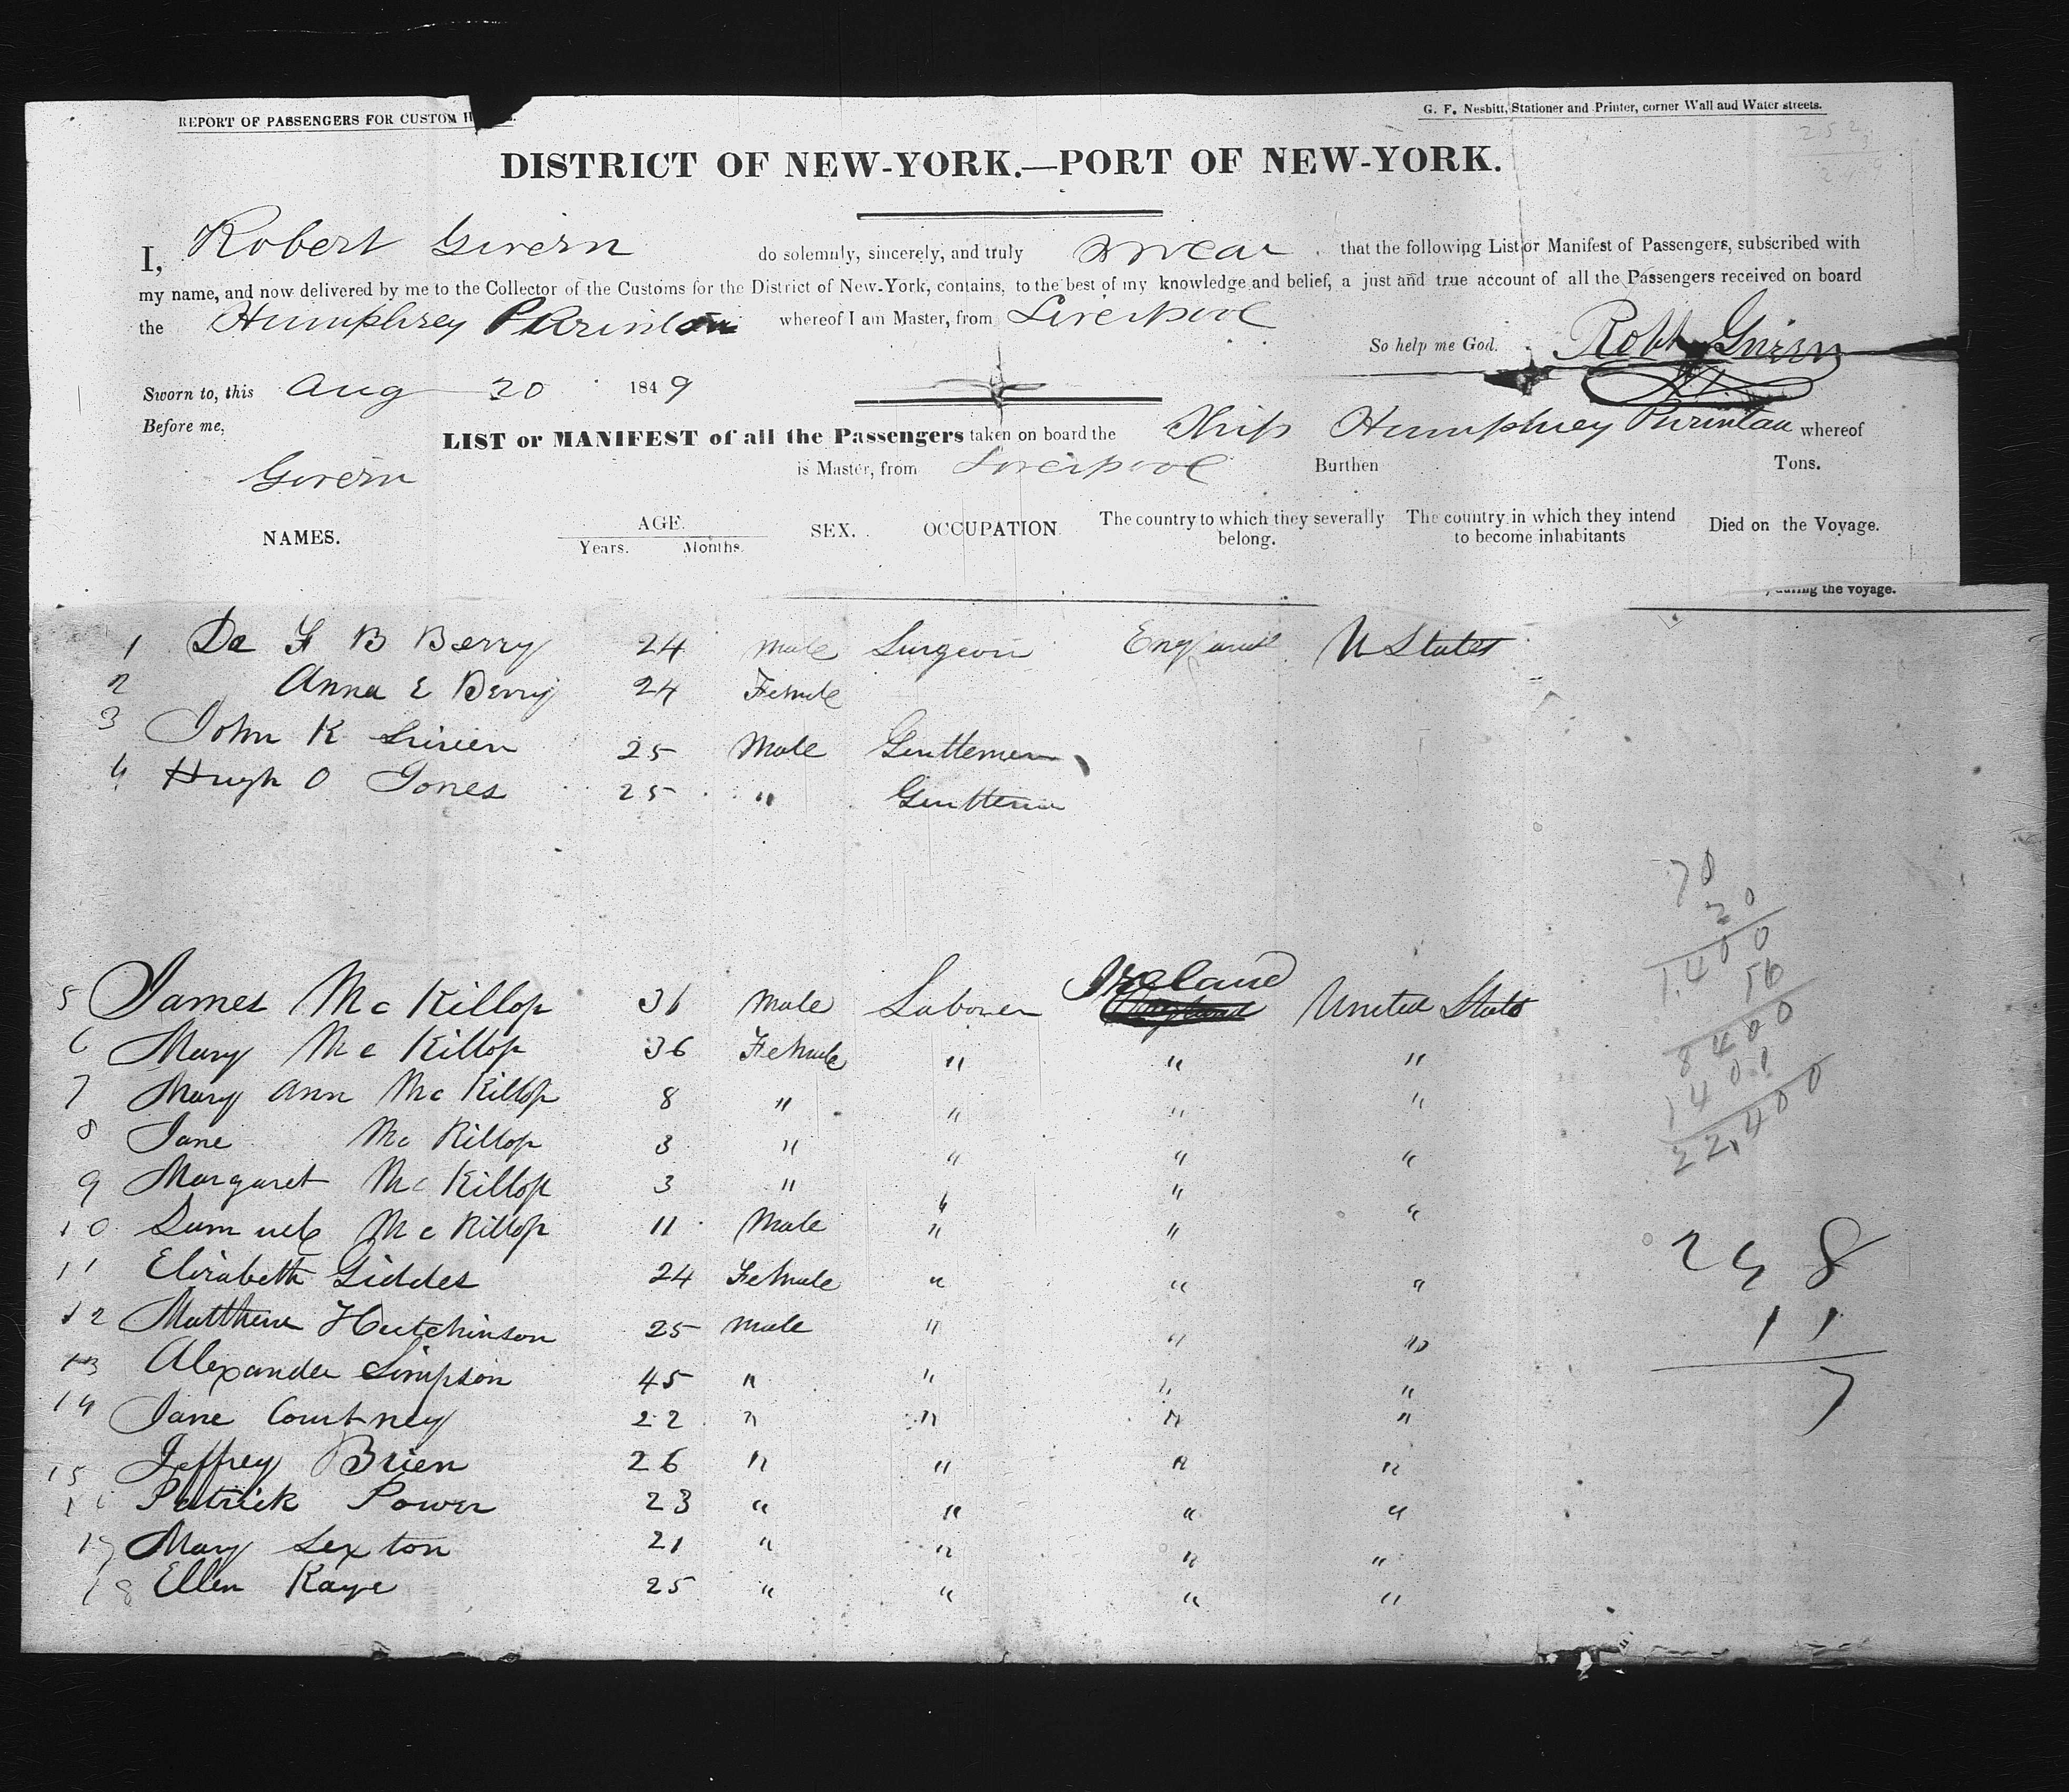 REPORT OF PASSENGERS FOR CUSTOM H
G. F. Nesbitt, Stationer and Printer, corner Wall and Water streets.
DISTRICT OF NEW-YORK.—PORT OF NEW-YORK.
I, Robert Givern do solemnly, sincerely, and truly swear that the following List or Manifest of Passengers, subscribed with
my name, and now delivered by me to the Collector of the Customs for the District of New-York, contains, to the best of my knowledge and belief, a just and true account of all the Passengers received on board
the Humphrey Purinton whereof I am Master, from Liverpool
So help me God. Robt Givern
Sworn to, this Aug 20 1849
Before me,
LIST or MANIFEST of all the Passengers taken on board the Ship Humphrey Purintan whereof
Givern is Master, from Liverpool Burthen Tons.
NAMES. AGE. Years. Months. SEX. OCCUPATION. The country to which they severally belong. The country in which they intend to become inhabitants Died on the Voyage.
during the voyage.
1 B Berry 24 Male Surgeon England U States
2 Anna E Berry 24 Female
3 John K 25 Male Gentlemen
4 Hugh O Jones 25 " Gentlemen
5 James Mc Killop 36 Male Laborer Ireland United States
6 Mary Mc Killop 36 Female " " "
7 Mary Ann Mc Killop 8 " " " "
8 Jane Mc Killop 3 " " " "
9 Margaret Mc Killop 3 " " " "
10 Samuel Mc Killop 11 Male " "
11 Elizabeth Giddes 24 Female " " "
12 Matthew Hutchinson 25 Male " " "
13 Alexander Simpson 45 " " " "
14 Jane Courtney 22 " " " "
15 Jeffrey Brien 26 " " " "
16 Patrick Power 23 " " " "
17 Mary Sexton 21 " " " "
18 Ellen Kaye 25 " " " "
70
20
1,400
8400
1400
22,400
11
7